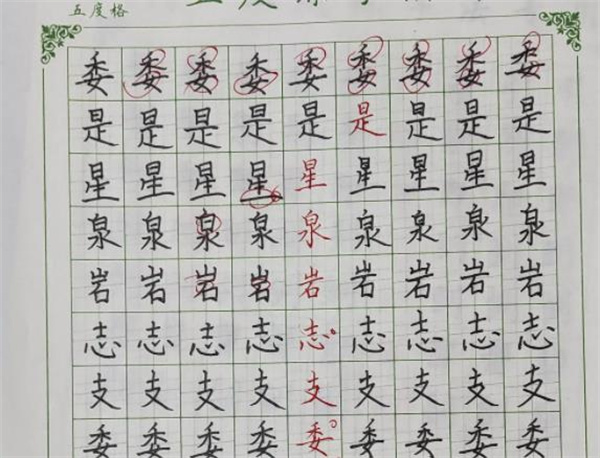 五度格
委委委委委委委委委
是是是是是是是是是
星星星星星星星星星
泉泉泉泉泉泉泉泉泉
岩岩岩岩岩岩岩岩岩
志志志志志志志志志
支支支支支支支支支
委委委委委委委委委